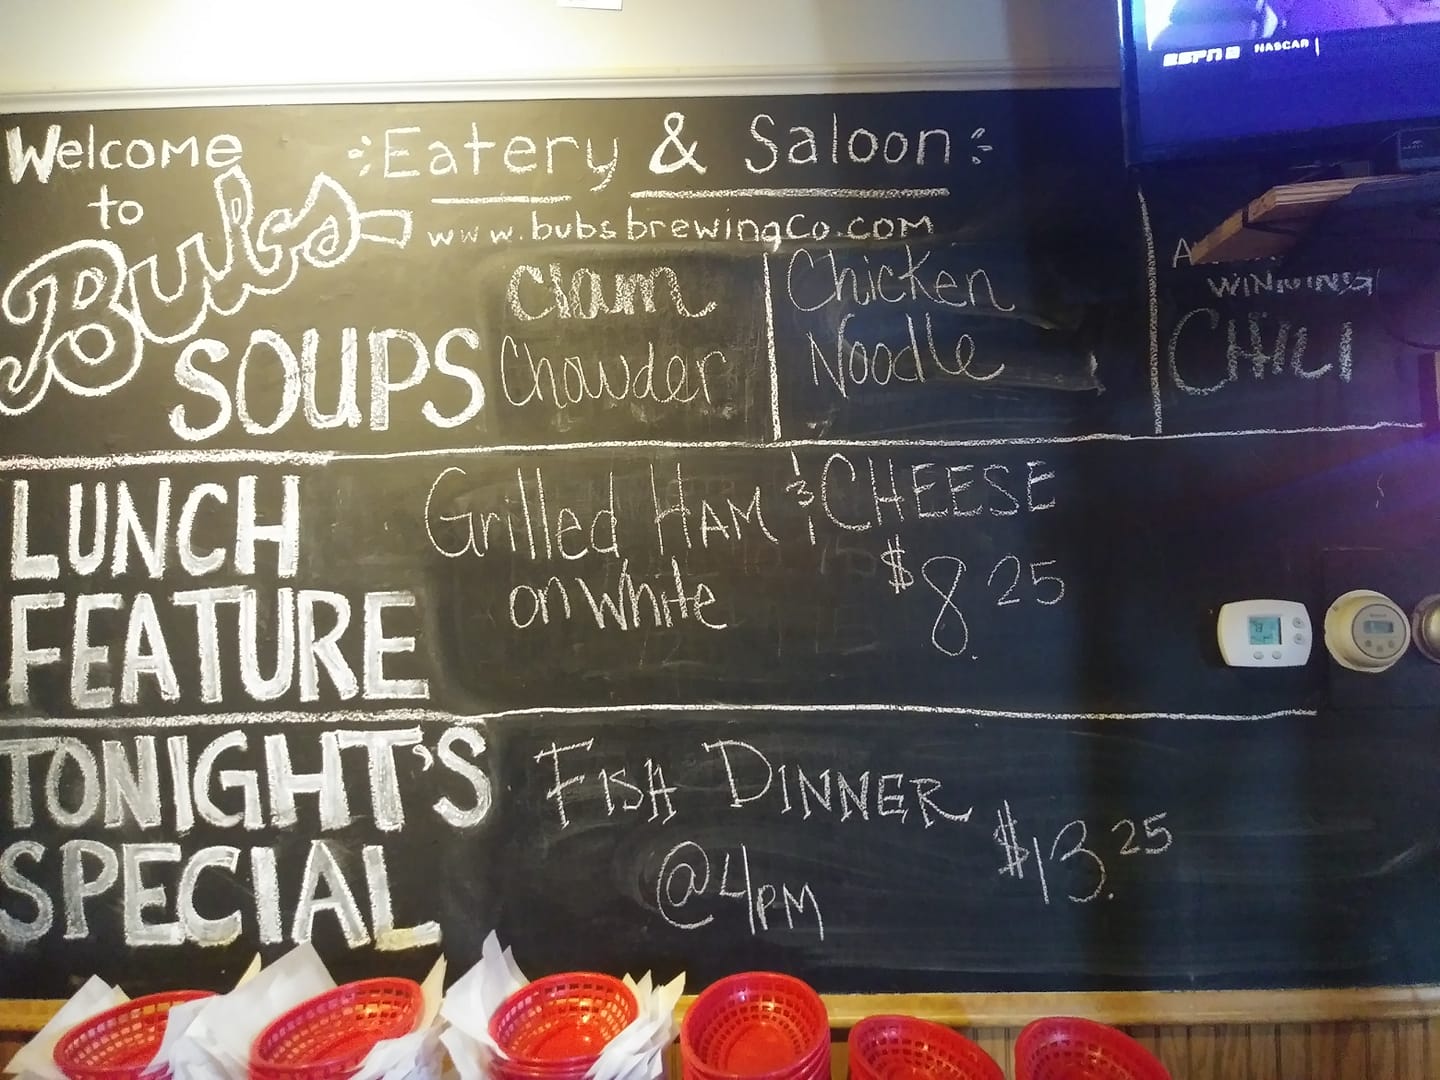 ESPN 2 NASCAR
Welcome
to
Bubs
Eatery & Saloon
www.bubsbrewingco.com
SOUPS
Clam
Chowder
Chicken
Noodle
WINNING
CHILI
LUNCH
FEATURE
Grilled HAM & CHEESE
on White
$8.25
TONIGHT'S
SPECIAL
FISH DINNER
@4PM
$13.25